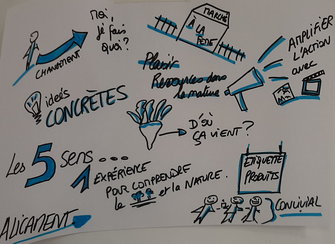 Moi,
je fais
quoi?
CHANGEMENT
MARCHÉ
À LA
FERME
AMPLIFIER
L'ACTION
AVEC
Plaisir
Ressources dans
la nature
idées
CONCRÈTES
D'OÙ
ÇA VIENT?
Les 5 sens ...
1 EXPÉRIENCE
POUR COMPRENDRE
le et la NATURE.
ETIQUETTE
PRODUITS
ALIGNEMENT
CONVIVIAL